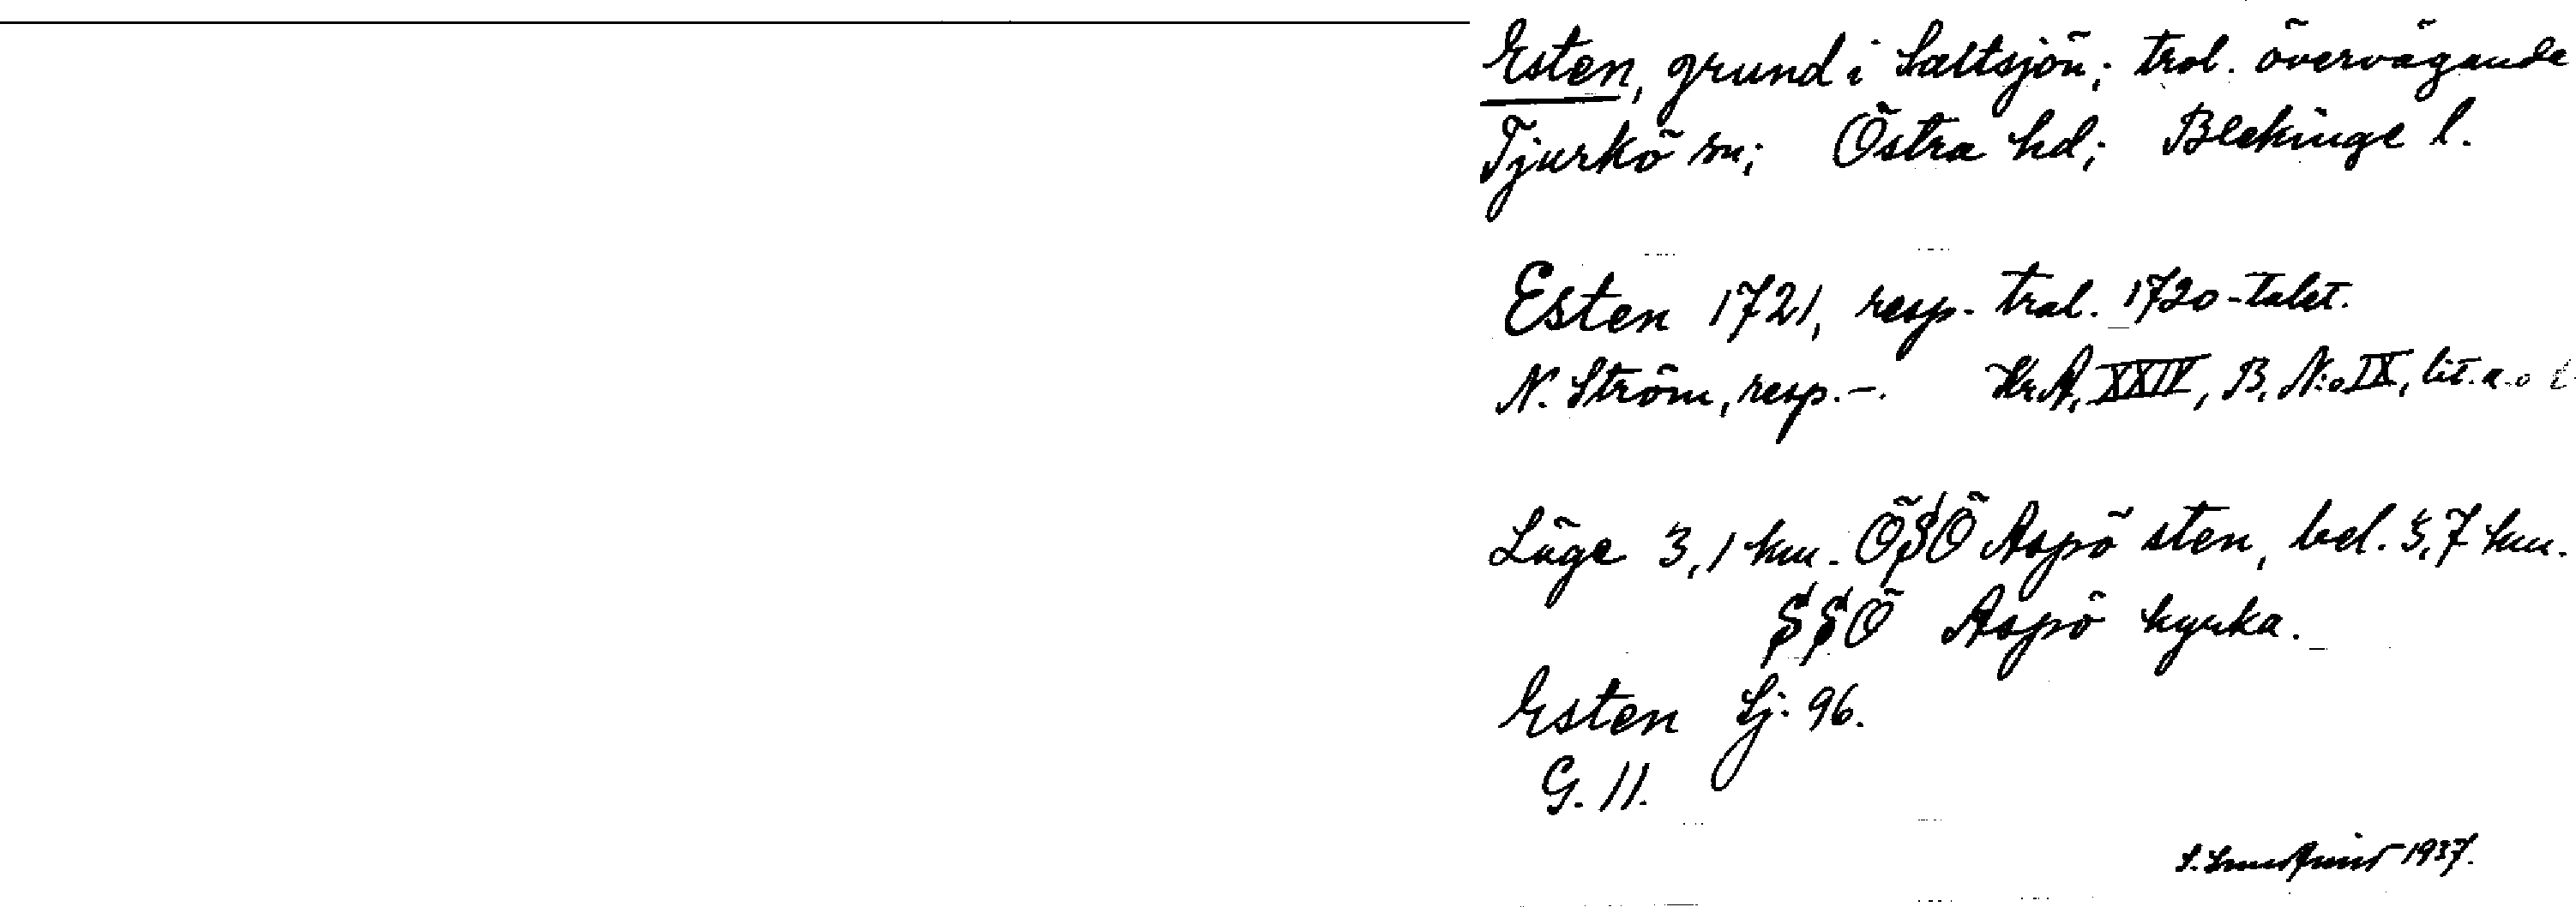 Esten, grund i Saltsjön; trol. övervägande
Tjurkö sn; Östra hd; Blekinge l.
Esten 1721, resp. trol. 1720-talet.
N. Ström, resp. -. Kr.A, XXIV, B, N:o IX, lit. a. o
Läge 3,1 km. ÖSÖ Aspö sten, bel. 3,7 km.
SSÖ Aspö kyrka.
Esten Sj. 96.
G. 11.
1937.